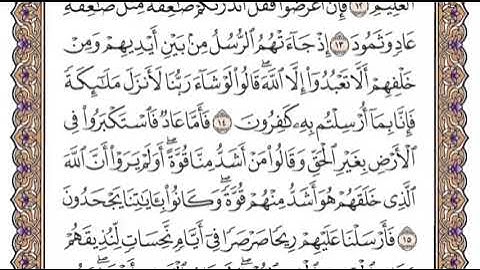 ٱلۡعَلِيمِ ١٢ فَإِنۡ أَعۡرَضُواْ فَقُلۡ أَنذَرۡتُكُمۡ صَٰعِقَةٗ مِّثۡلَ صَٰعِقَةِ
عَادٖ وَثَمُودَ ١٣ إِذۡ جَآءَتۡهُمُ ٱلرُّسُلُ مِنۢ بَيۡنِ أَيۡدِيهِمۡ وَمِنۡ
خَلۡفِهِمۡ أَلَّا تَعۡبُدُوٓاْ إِلَّا ٱللَّهَۖ قَالُواْ لَوۡ شَآءَ رَبُّنَا لَأَنزَلَ مَلَٰٓئِكَةٗ
فَإِنَّا بِمَآ أُرۡسِلۡتُم بِهِۦ كَٰفِرُونَ ١٤ فَأَمَّا عَادٞ فَٱسۡتَكۡبَرُواْ فِي
ٱلۡأَرۡضِ بِغَيۡرِ ٱلۡحَقِّ وَقَالُواْ مَنۡ أَشَدُّ مِنَّا قُوَّةًۖ أَوَلَمۡ يَرَوۡاْ أَنَّ ٱللَّهَ
ٱلَّذِي خَلَقَهُمۡ هُوَ أَشَدُّ مِنۡهُمۡ قُوَّةٗۖ وَكَانُواْ بِـَٔايَٰتِنَا يَجۡحَدُونَ
١٥ فَأَرۡسَلۡنَا عَلَيۡهِمۡ رِيحٗا صَرۡصَرٗا فِيٓ أَيَّامٖ نَّحِسَاتٖ لِّنُذِيقَهُمۡ